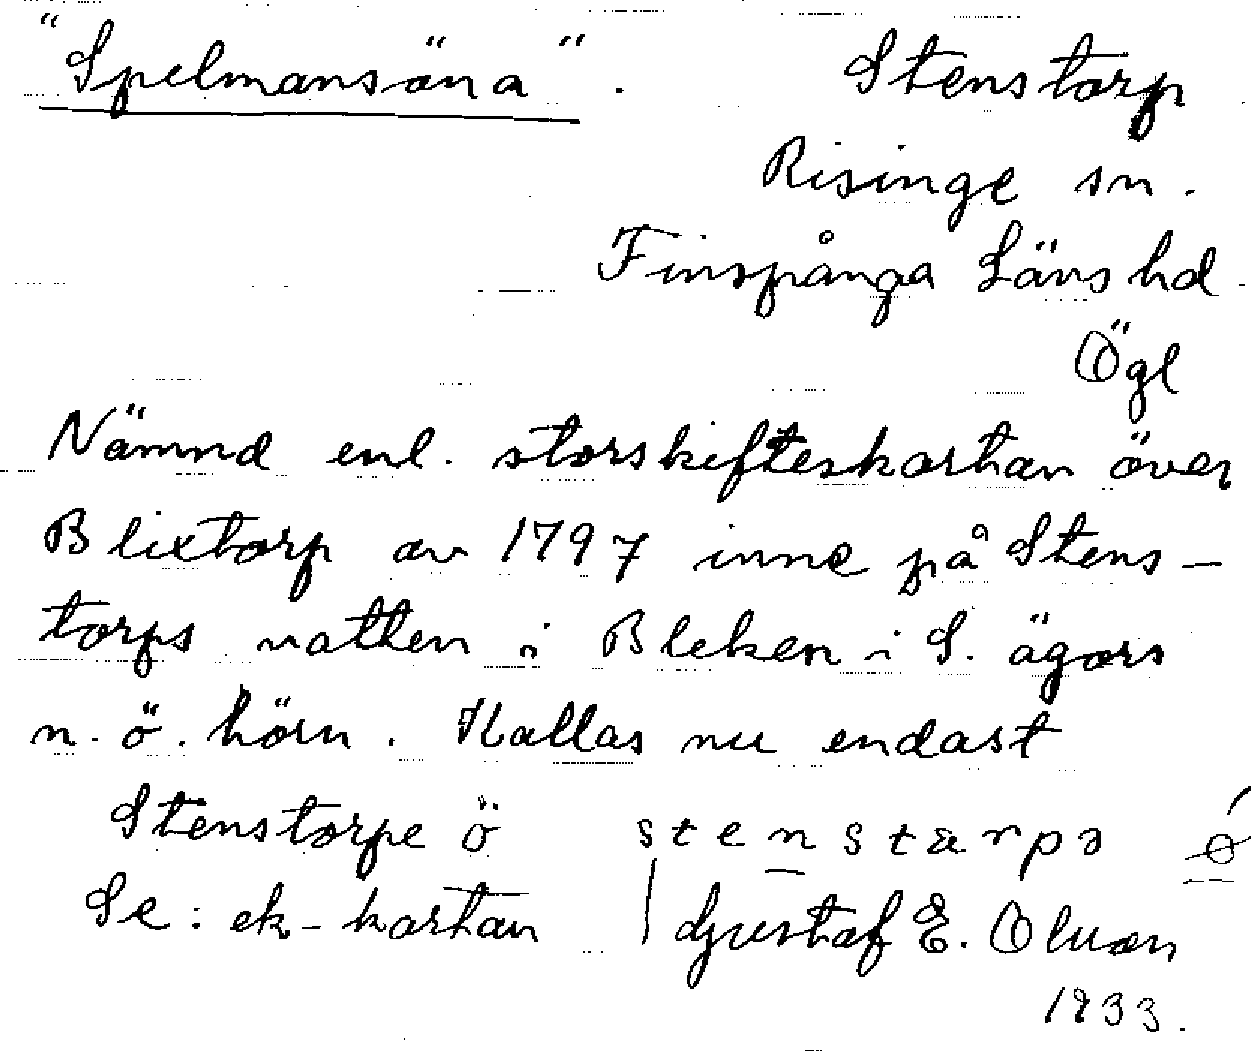 "Spelmansöna". Stenstorp
Risinge sn.
Finspånga Läns hd.
Ögl
Nämnd enl. storskifteskartan över
Blixtorp av 1797 inne på Stens-
torps vatten i Bleken i S. ägors
n. ö. hörn. Kallas nu endast
Stenstorpe ö stenstarpə
Se: ek-kartan Gustaf E. Olson
1933.